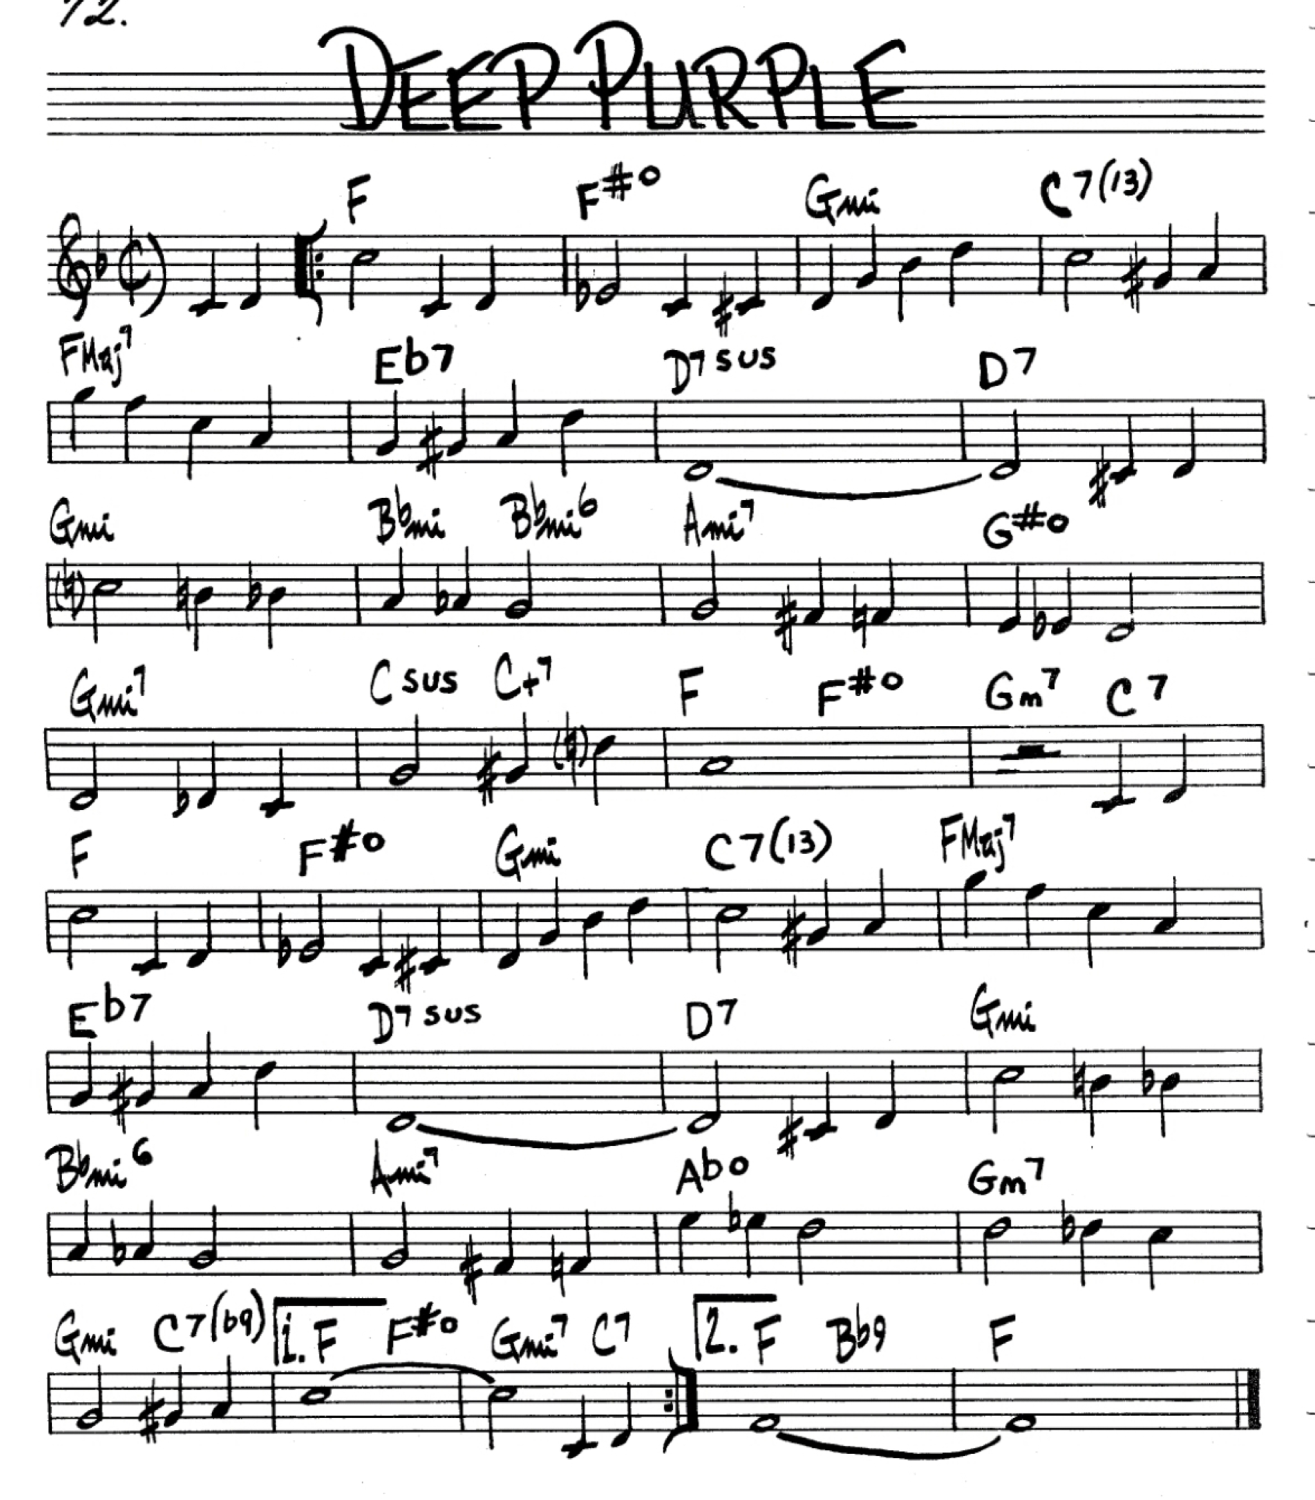 72.
DEEP PURPLE
F F#o Gmi C7(13)
FMaj7 Eb7 D7sus D7
Gmi Bbmi Bbmi6 Ami7 G#o
Gmi7 Csus C+7 F F#o Gm7 C7
F F#o Gmi C7(13) FMaj7
Eb7 D7sus D7 Gmi
Bbmi6 Ami7 Abo Gm7
Gmi C7(b9) 1. F F#o Gmi7 C7 2. F Bb9 F